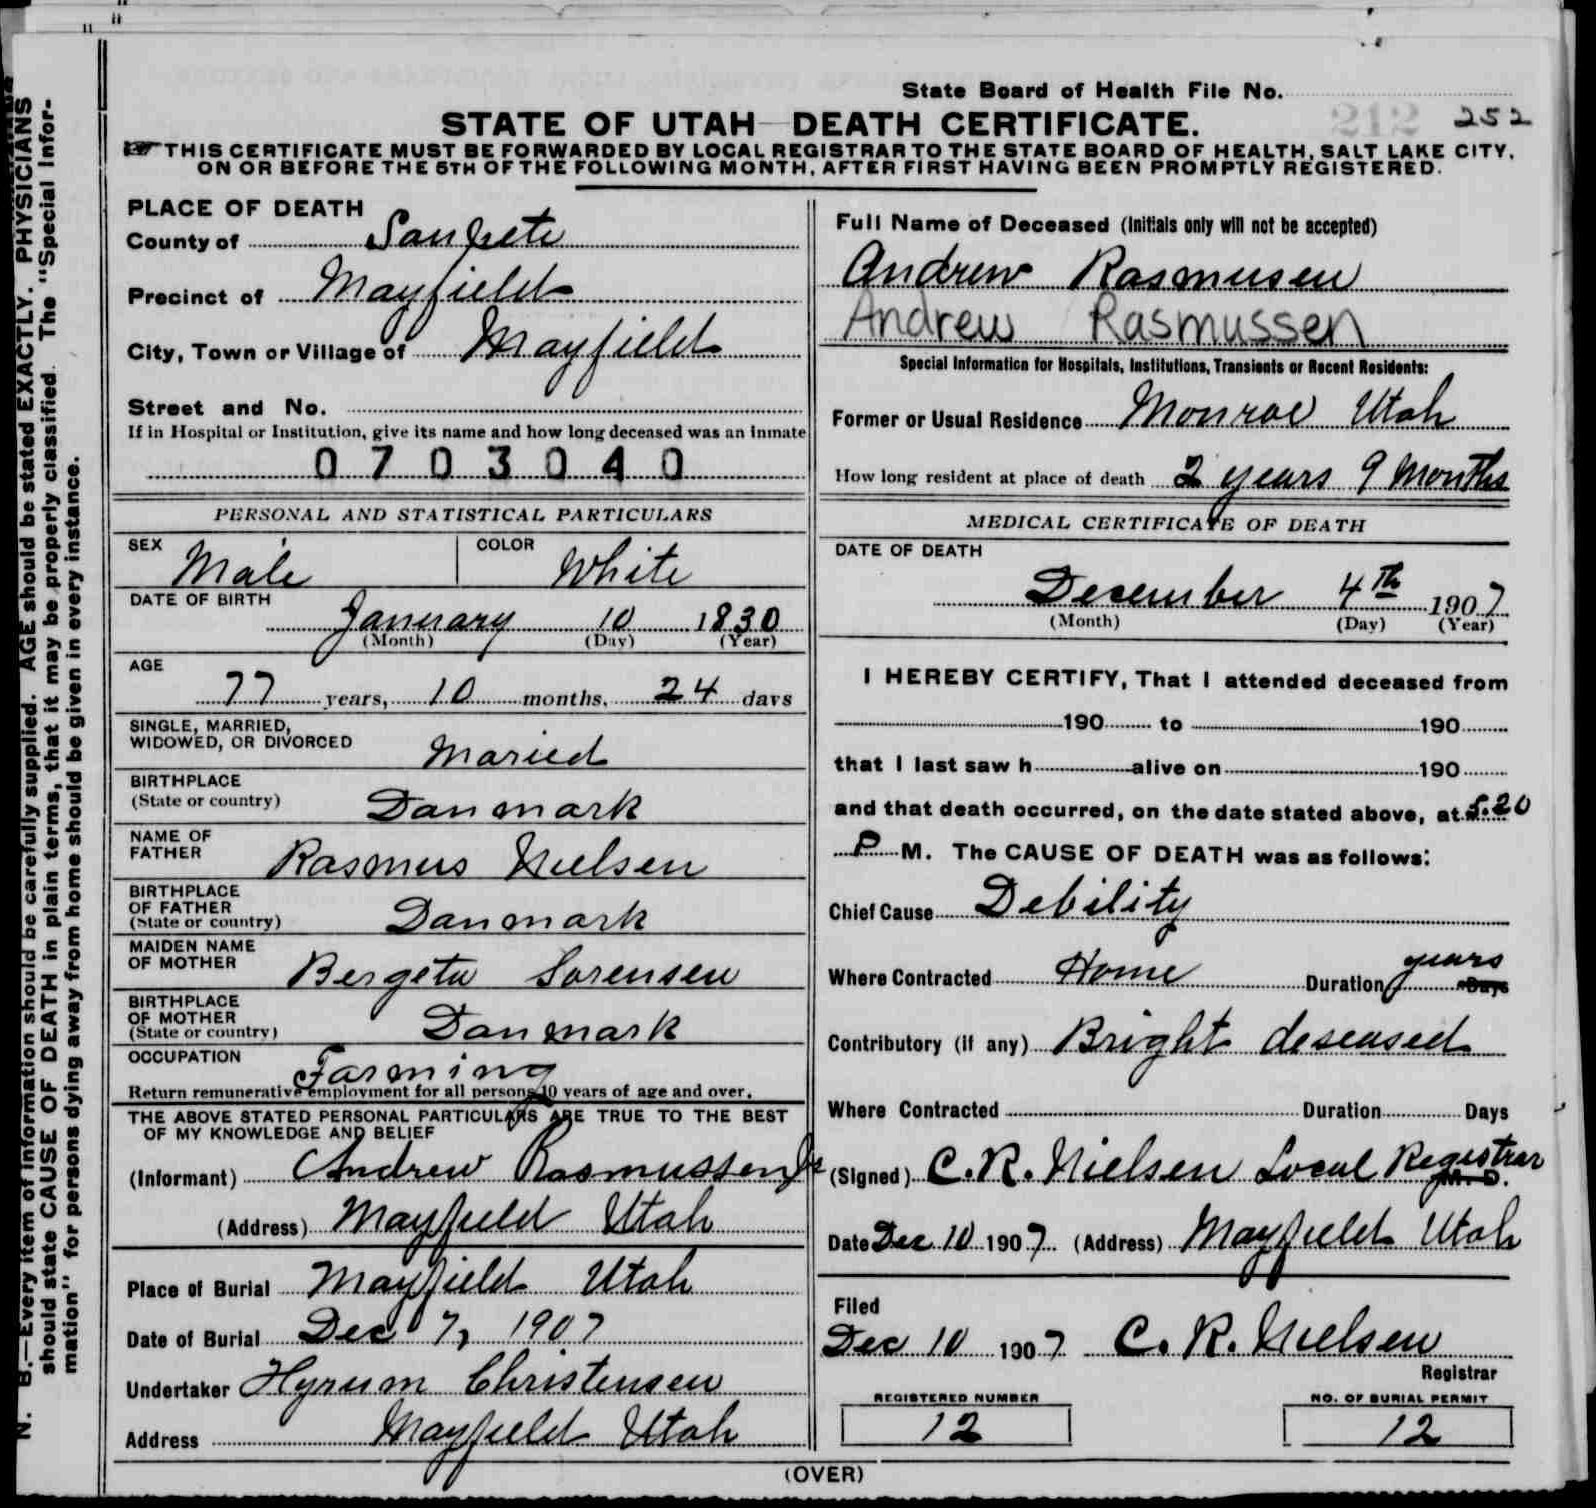 State Board of Health File No.
212 252
STATE OF UTAH—DEATH CERTIFICATE.
☞ THIS CERTIFICATE MUST BE FORWARDED BY LOCAL REGISTRAR TO THE STATE BOARD OF HEALTH, SALT LAKE CITY,
ON OR BEFORE THE 5TH OF THE FOLLOWING MONTH, AFTER FIRST HAVING BEEN PROMPTLY REGISTERED.
PLACE OF DEATH
County of Sanpete
Precinct of Mayfield
City, Town or Village of Mayfield
Street and No.
If in Hospital or Institution, give its name and how long deceased was an inmate
0703040
PERSONAL AND STATISTICAL PARTICULARS
SEX Male COLOR White
DATE OF BIRTH
January 10 1830
(Month) (Day) (Year)
AGE
77 years, 10 months, 24 days
SINGLE, MARRIED,
WIDOWED, OR DIVORCED Maried
BIRTHPLACE
(State or country) Danmark
NAME OF
FATHER Rasmus Nielsen
BIRTHPLACE
OF FATHER
(State or country) Danmark
MAIDEN NAME
OF MOTHER Bergeta Sorensen
BIRTHPLACE
OF MOTHER
(State or country) Danmark
OCCUPATION Farming
Return remunerative employment for all persons 10 years of age and over.
THE ABOVE STATED PERSONAL PARTICULARS ARE TRUE TO THE BEST
OF MY KNOWLEDGE AND BELIEF
(Informant) Andrew Rasmussen Jr
(Address) Mayfield Utah
Place of Burial Mayfield Utah
Date of Burial Dec 7, 1907
Undertaker Hyrum Christensen
Address Mayfield Utah
Full Name of Deceased (Initials only will not be accepted)
Andrew Rasmusen
Andrew Rasmussen
Special Information for Hospitals, Institutions, Transients or Recent Residents:
Former or Usual Residence Monroe Utah
How long resident at place of death 2 years 9 Months
MEDICAL CERTIFICATE OF DEATH
DATE OF DEATH
December 4th 1907
(Month) (Day) (Year)
I HEREBY CERTIFY, That I attended deceased from
190 to 190
that I last saw h alive on 190
and that death occurred, on the date stated above, at 5.20
P M. The CAUSE OF DEATH was as follows:
Chief Cause Debility
Where Contracted Home Duration years Days
Contributory (if any) Bright deseased
Where Contracted Duration Days
(Signed) C. R. Nielsen Local Registrar M. D.
Date Dec 10 1907 (Address) Mayfield Utah
Filed
Dec 10 1907 C. R. Nielsen
Registrar
REGISTERED NUMBER NO. OF BURIAL PERMIT
12 12
(OVER)
N. B.—Every item of information should be carefully supplied. AGE should be stated EXACTLY. PHYSICIANS
should state CAUSE OF DEATH in plain terms, that it may be properly classified. The "Special Infor-
mation" for persons dying away from home should be given in every instance.